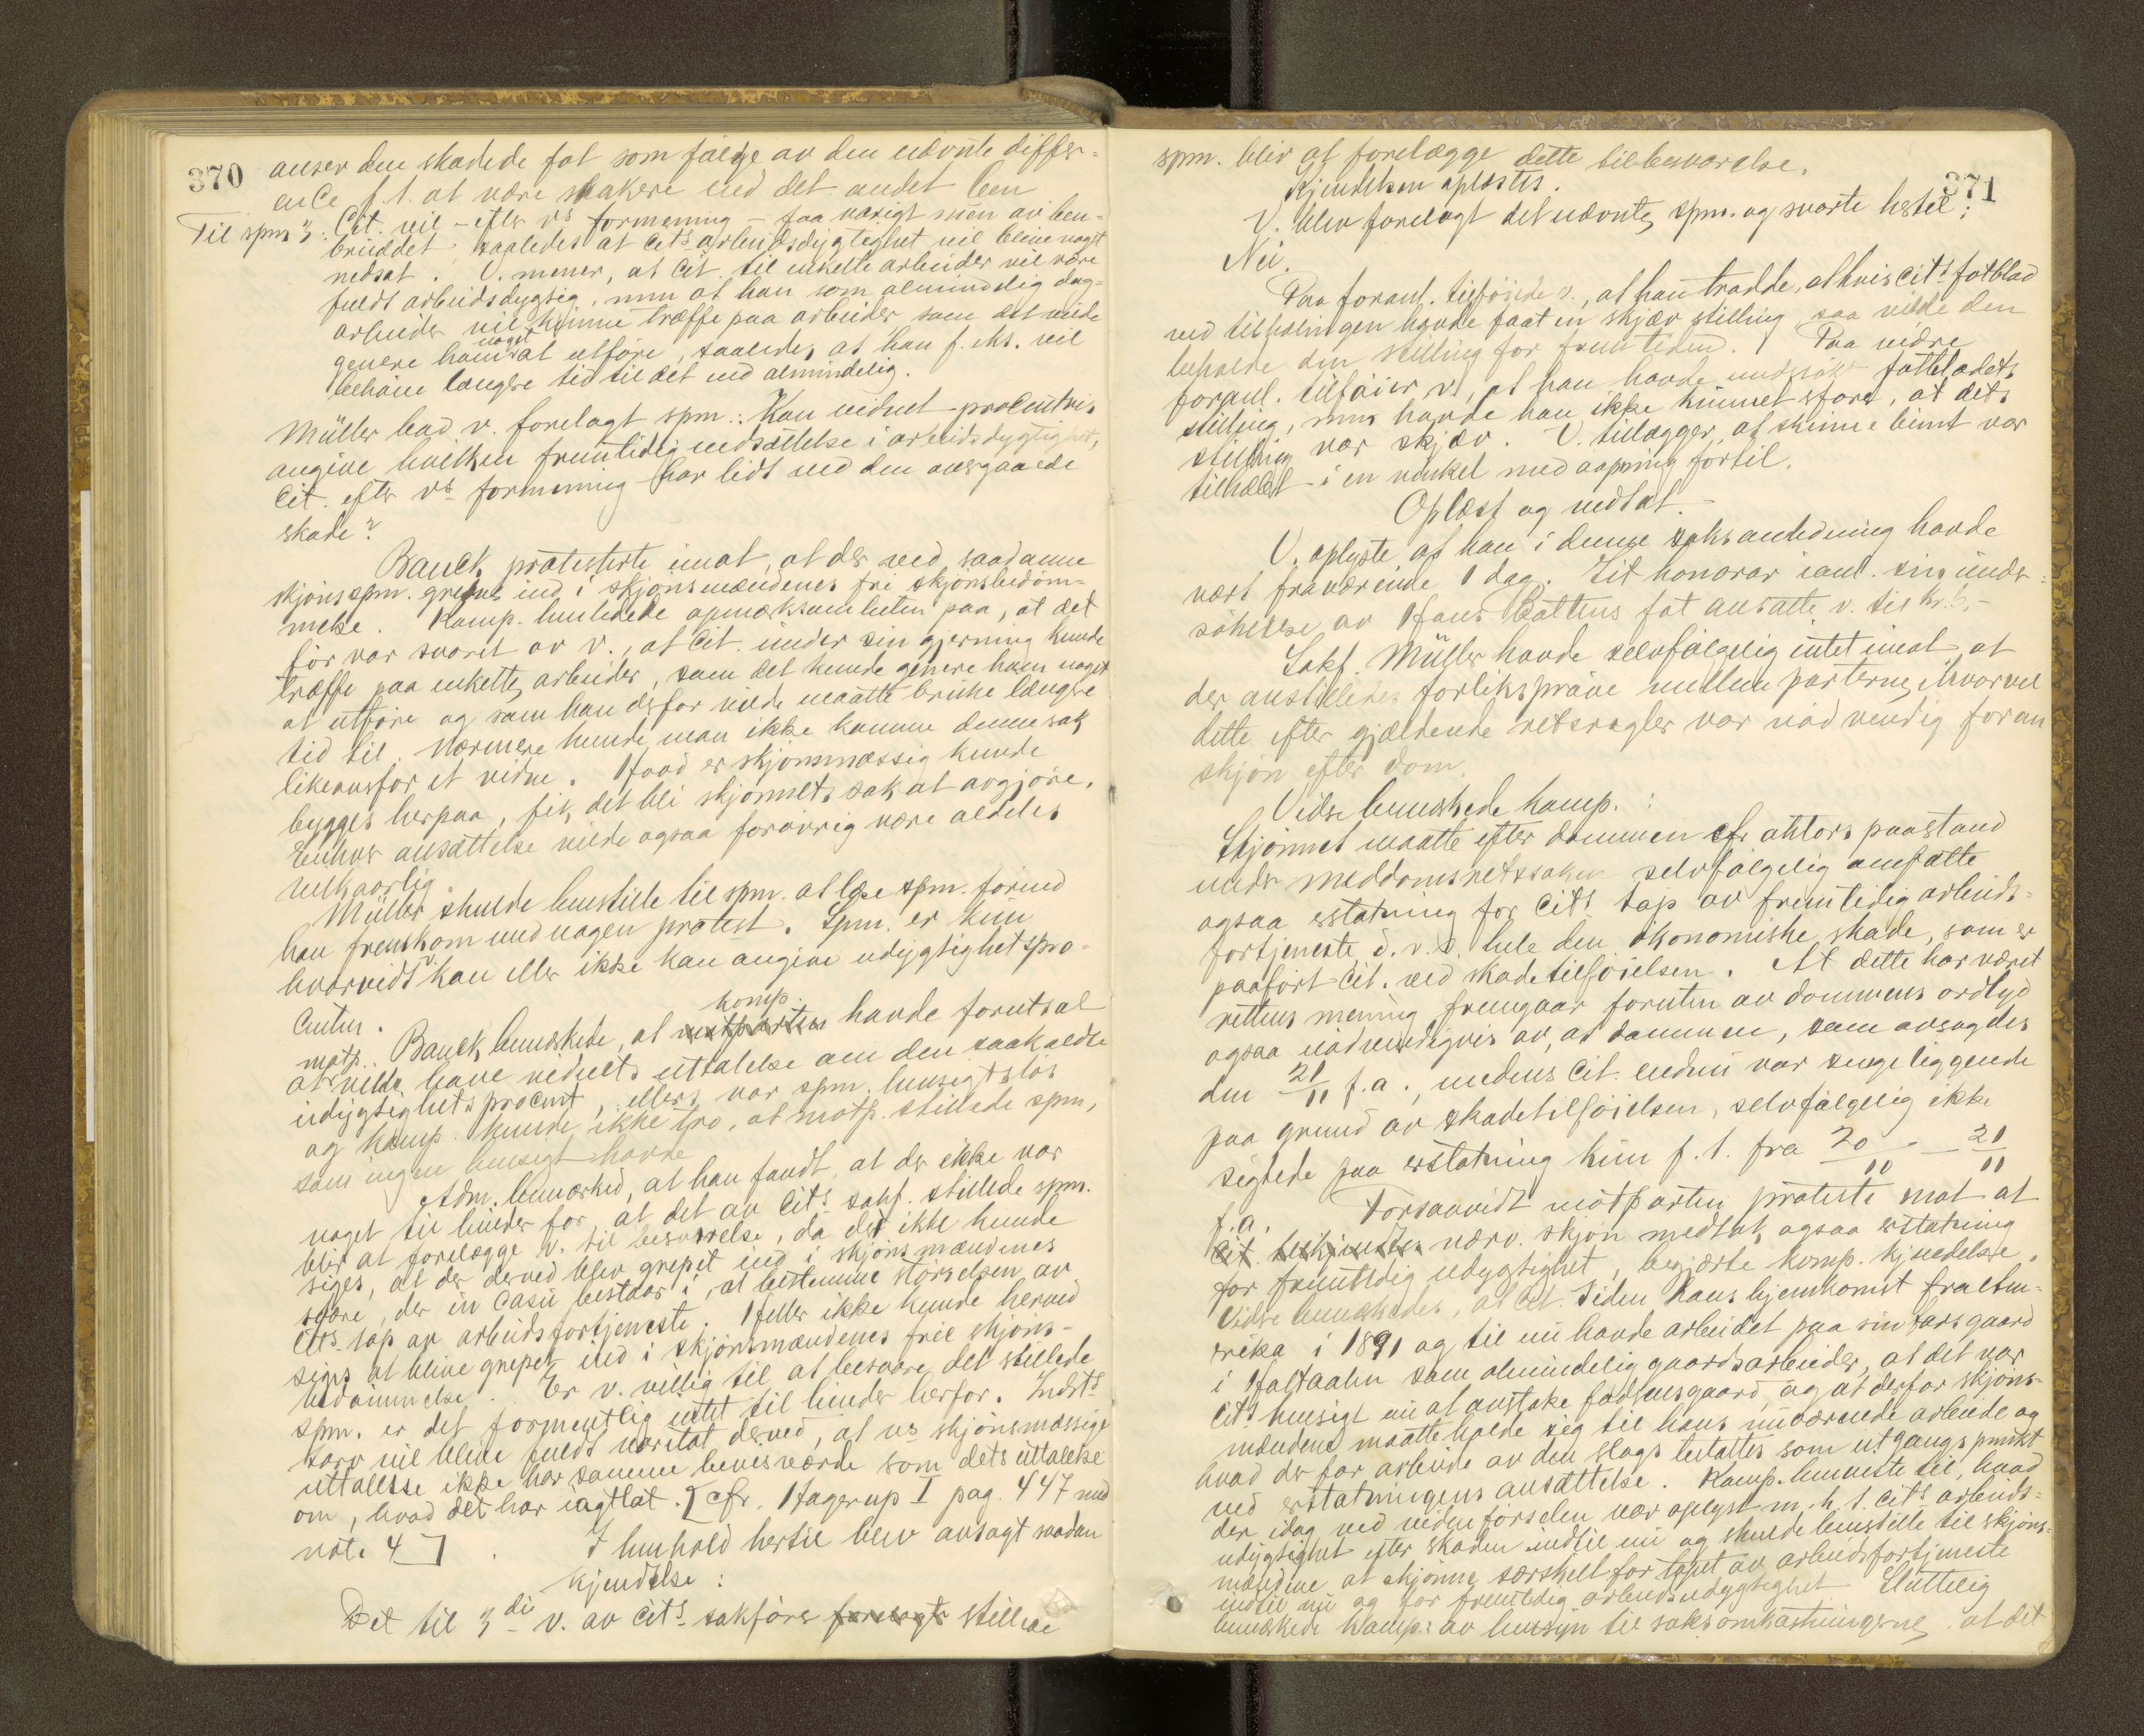 370
anser den skadede fot som følge av den nævnte differ-
ence f. t. at være svakere end det andet ben
Til spm 3: Cit. vil - efter v's formening - faa varigt mén av ben-
bruddet, saaledes at cit's arbeidsdygtighet vil blive noget
nedsat. V. mener, at cit. til enkelte arbeider vil være
fuldt arbeidsdygtig, men at han som almindelig dag-
arbeider vil kunne træffe paa arbeider som det vilde
genere ham noget at utføre, saaledes at han f. eks. vil
behøve længere tid til det end almindelig.
Müller bad v. forelagt spm.: Kan vidnet procentvis
angive hvilken fremtidig nedsættelse i arbeidsdygtighet,
Cit. efter v's formening har lidt ved den overgaaede
skade?
Banck protesterte imot, at der ved saadanne
skjønsspm. gripes ind i skjønsmændenes fri skjønsbedøm-
melse. Komp. henledede opmerksomheten paa, at det
før var svaret av v., at cit. under sin gjerning kunde
træffe paa enkelte arbeider, som det kunde genere ham noget
at utføre og som han derfor vilde maatte bruke længere
tid til. Nærmere kunde man ikke komme denne sak
likeoverfor et vidne. Hvad er skjønnmæssig kunde
bygges herpaa, fik det bli skjønnets sak at avgjøre.
Enhver ansættelse vilde ogsaa forøvrig være aldeles
vilkaarlig.
Müller skulde henstille til spm. at læse spm. førend
han fremkom med nogen protest. Spm. er kun
hvorvidt v. kan eller ikke kan angive udygtighetspro-
centen.
Banck bemerkede, at komp. havde forutsat
at motp. vilde have vidnets uttalelse om den saakaldte
udygtighetsprocent, ellers var spm. hensigtsløs
og komp. kunde ikke tro, at motp. stillede spm,
som ingen hensigt havde
Adm. bemærked, at han fandt, at der ikke var
noget til hinder for, at det av cit's sakf. stillede spm.
blir at forelægge v. til besvarelse, da det ikke kunde
siges, at der derved blev grepet ind i skjønsmændenes
svare, der in casu bestaar i, at bestemme størrelsen av
cit's tap av arbeidsfortjeneste. Heller ikke kunde herved
siges at blive grepet ind i skjønsmændenes frie skjøns-
bedømmelse. Er v. villig til at besvare det stillede
spm. er det formentlig intet til hinder herfor. Indst's
tarv vil blive fuldt varetat derved, at v's skjønsmæssige
uttalelse ikke har samme bevisværde som dets uttalelse
om, hvad det har iagttat. [cfr. Hagerup I pag. 447 med
note 4]
I henhold hertil blev avsagt saadan
kjendelse:
Det til 3di v. av cit's sakfører forelagte stillede
371
spm. blir at forelægge dette til besvarelse.
Kjendelsen oplæstes.
V. blev forelagt det nævnte spm. og svarte hertil:
Nei.
Paa foranl. tilføiede v., at han trodde, at hvis cit's fotblad
ved tilhelingen havde faat en skjæv stilling saa vilde den
beholde den stilling for fremtiden. Paa videre
foranl. tilføier v., at han havde undersøkt fotbladets
stilling, men havde han ikke kunnet erfare, at dets
stilling var skjæv. V. tillægger, at skinnebenet var
tilhelet i en vinkel med aapning fortil.
Oplæst og vedtat.
V. oplyste at han i denne saks anledning havde
vært fraværende 1 dag. Sit honorar ianl. sin under-
søkelse av Hans Bottens fot ansatte v. til kr. 6,-
Sakf. Müller havde selvfølgelig intet imot, at
der anstilledes forliksprøve mellem parterne, hvorvel
dette efter gjældende retsregler var nødvendig foran
skjøn efter dom.
Vidre bemerkede komp.:
Skjønnet maatte efter dommen cfr aktors paastand
under meddomsretssaken selvfølgelig omfatte
ogsaa erstatning for cit's tap av fremtidig arbeids-
fortjeneste d. v. s. hele den økonomiske skade, som er
paaført cit. ved skadetilføielsen. At dette har været
rettens mening fremgaar foruten av dommens ordlyd
ogsaa nødvendigvis av, at dommen, som avsagdes
den 21/11 f.a., medens cit. endnu var sengeliggende
paa grund av skadetilføielsen, selvfølgelig ikke
sigtede paa erstatning kun f. t. fra 20/10 - 21/11
f.a. Forsaavidt motparten protesterte mot at
nærv. skjøn medtok ogsaa erstatning
for fremtidig udygtighet, begjærte komp. kjendelse.
Videre bemerkedes, at cit. siden hans hjemkomst fra Am-
erika i 1891 og til nu havde arbeidet paa sin fars gaard
i Haltdalen som almindelig gaardsarbeider, at det var
cit's hensigt nu at overtake fødelsesgaard, og at derfor skjøns-
mændene maatte holde sig til hans nuværende arbeide og
hvad der for arbeide av den slags betaltes som utgangspunkt
ved erstatningens ansættelse. Komp. henviste til, hvad
der idag ved vidneførselen var oplyst m. h. t. cit's arbeids-
udygtighet efter skaden indtil nu og skulde henstille til skjøns-
mændene at skjønne særskilt for tapet av arbeidsfortjeneste
indtil nu og for fremtidig arbeidsudygtighet Sluttelig
bemerkede komp. av hensyn til saksomkostningerne, at det